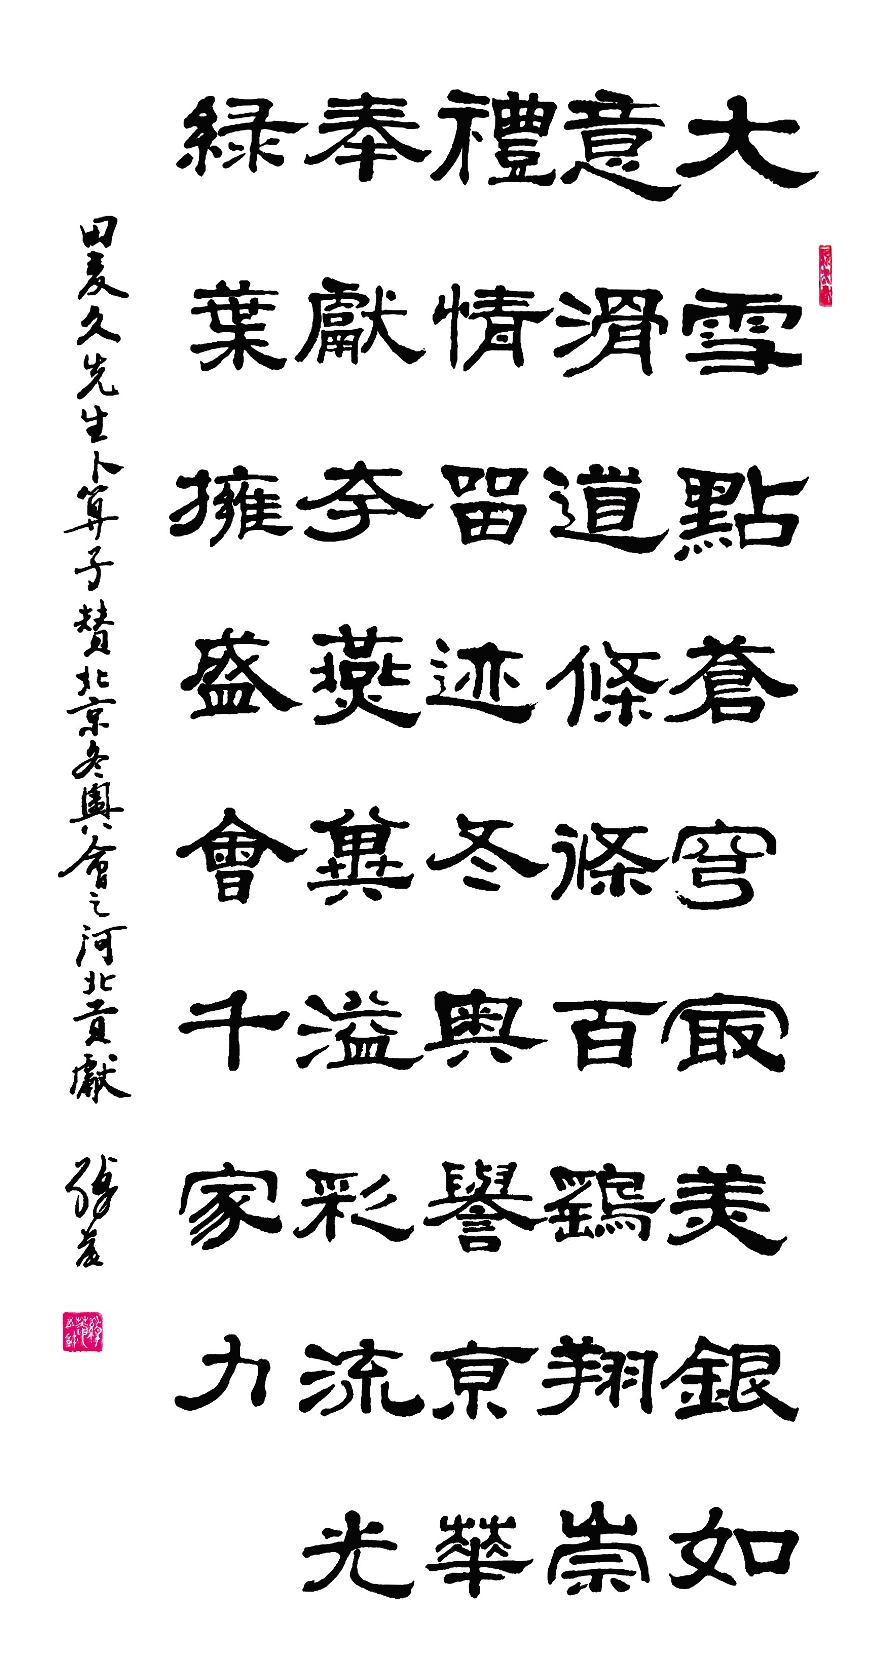 大雪點蒼穹冣美銀如
意滑道條條百鷂翔崇
禮情留迹冬奧譽京華
奉獻夸燕冀溢彩流光
綠葉擁盛會千家力
田麦久先生卜算子賛北京冬奧會之河北貢獻